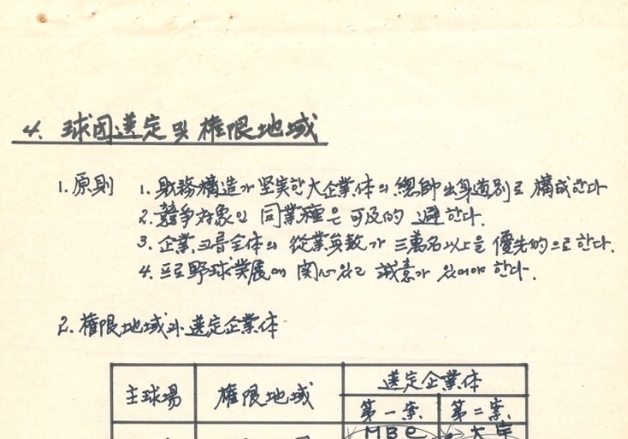 4. 球団選定 및 権限地域
1. 原則 1. 財務構造가 堅実한 大企業体의 總帥 出身道別로 構成한다
2. 競争対象의 同業種은 可及的 避한다.
3. 企業그룹全体의 從業員数가 三萬名以上을 優先的으로 한다.
4. 프로野球発展에 関心있고 誠意가 있어야 한다.
2. 権限地域과 選定企業体
主球場 権限地域 選定企業体
第一案 第二案
MBC 大宇